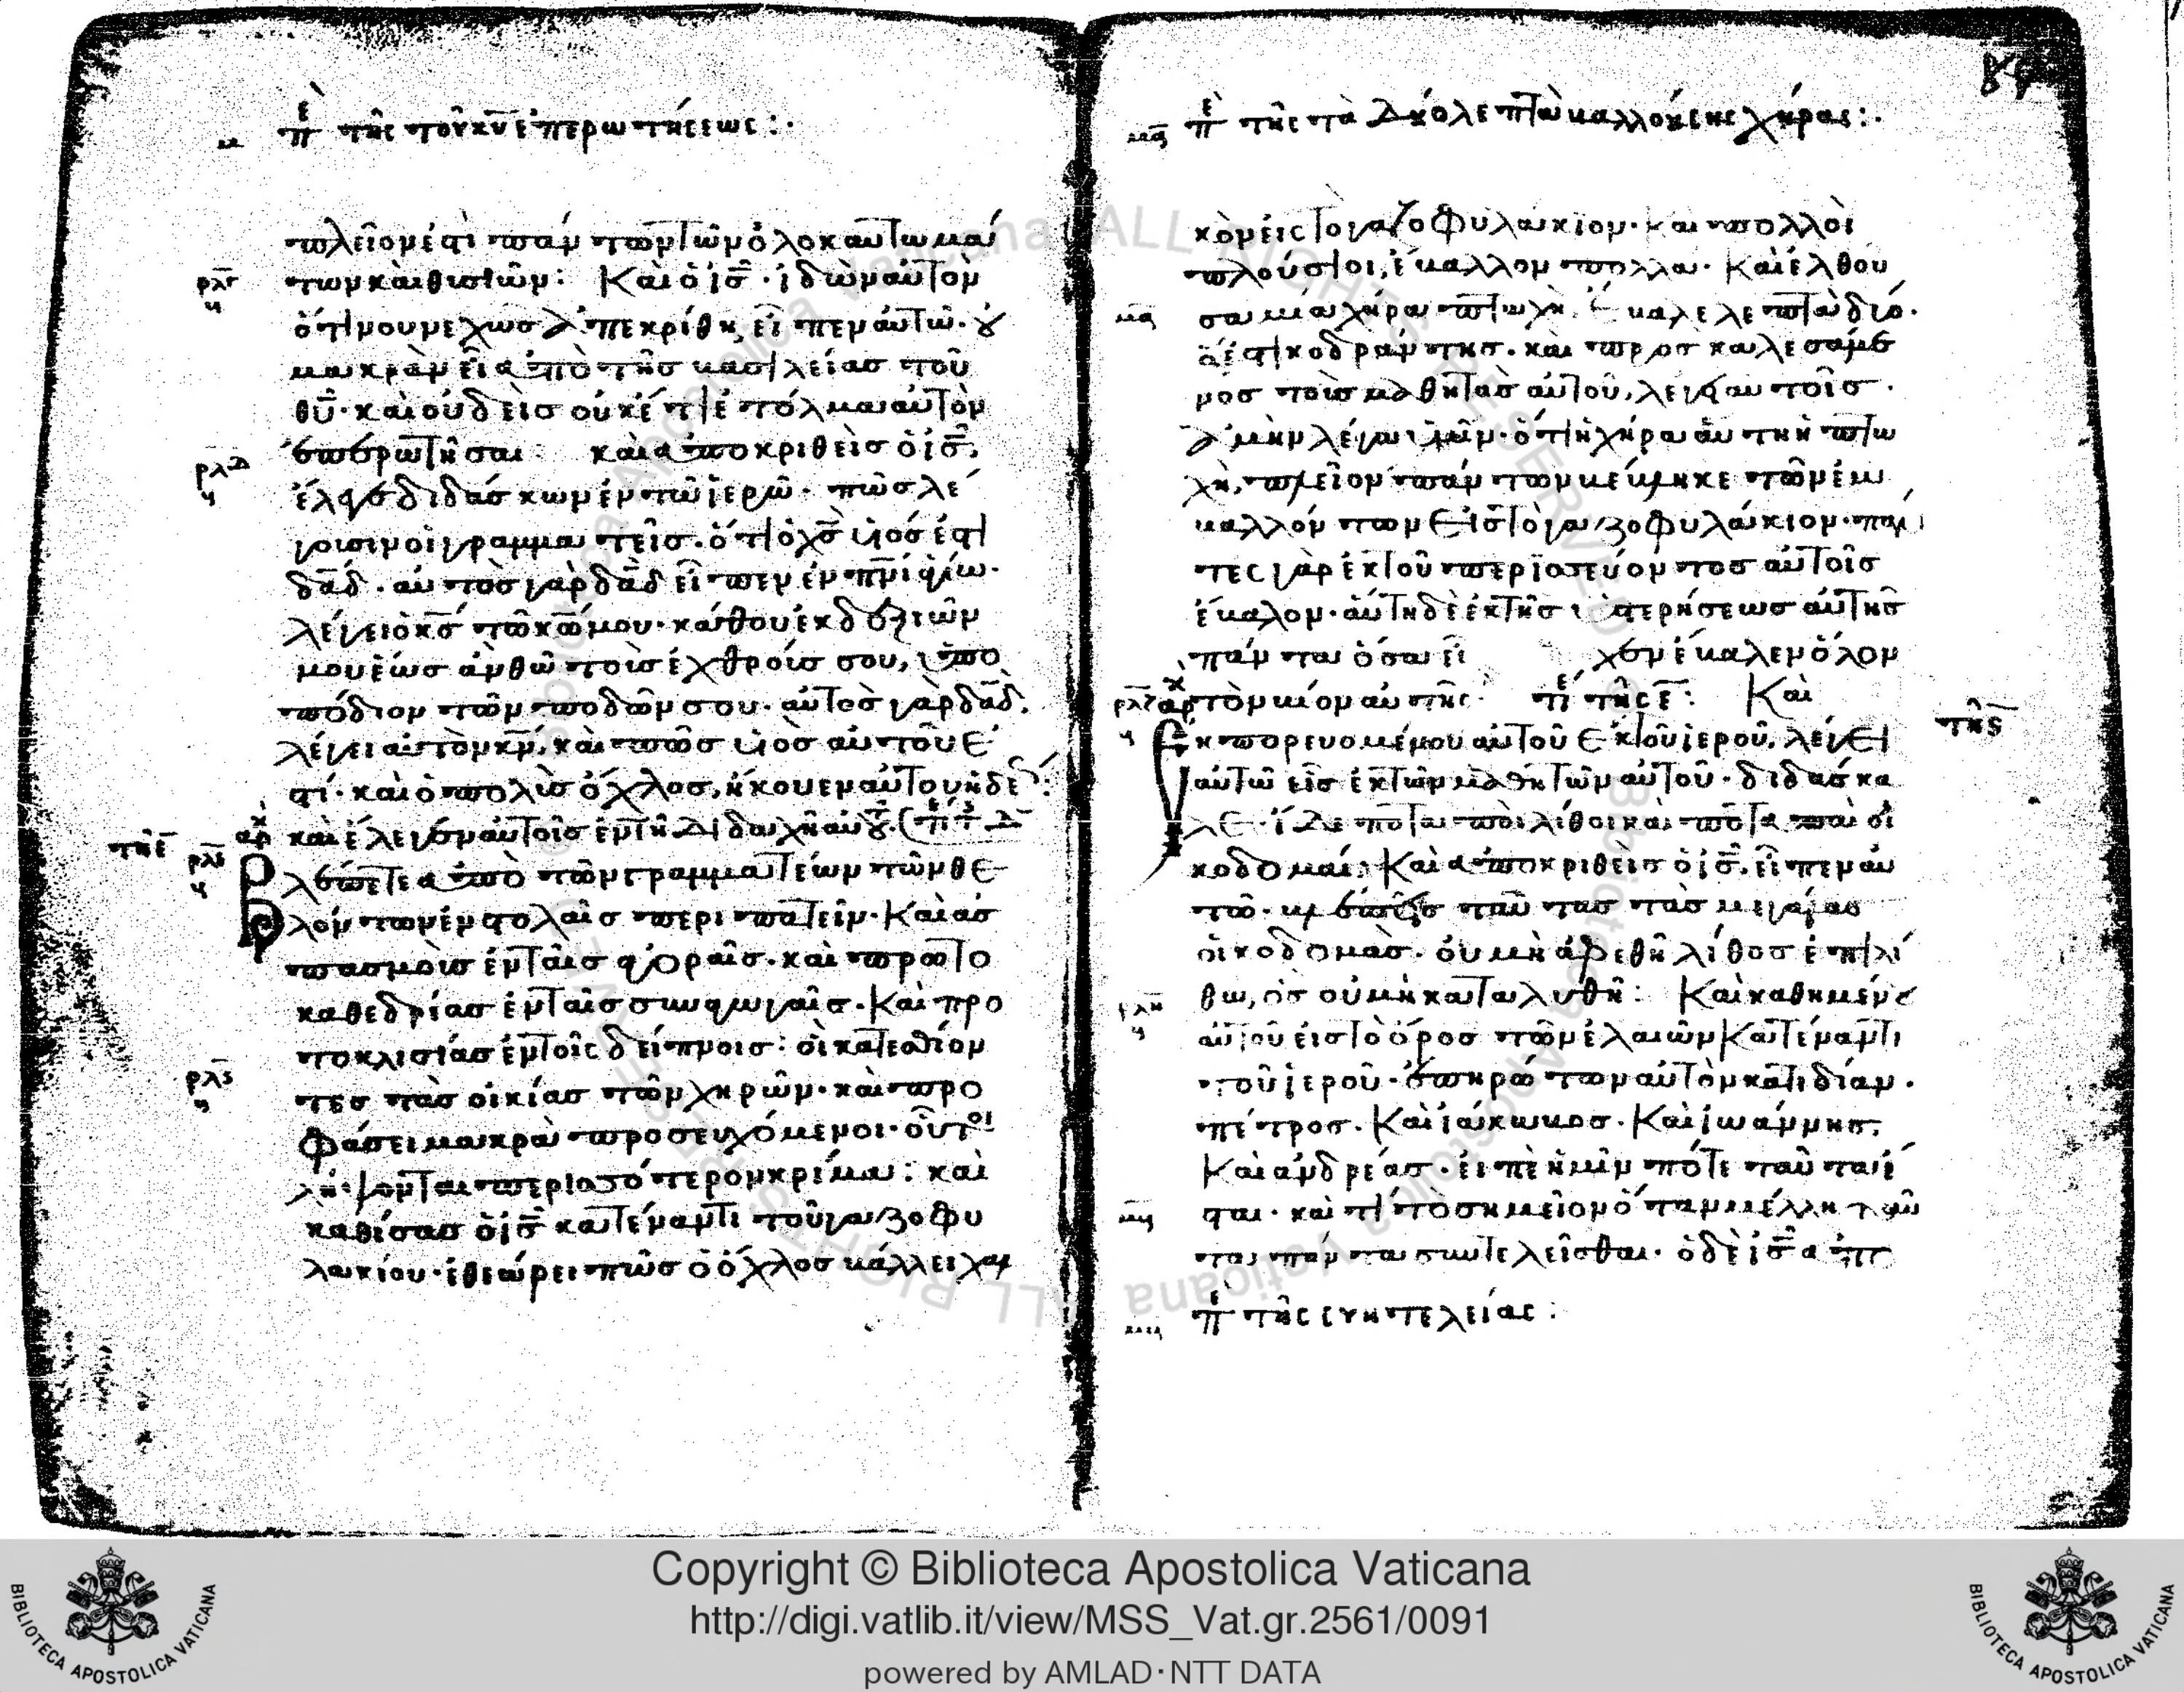 μ περὶ τῆς τοῦ κυ ἐπερωτήσεως:
πλεῖον ἐστὶ πάντων τῶν ὁλοκαυτωμά
των καὶ θυσιῶν: Καὶ ὁ ἰς· ἰδὼν αὐτὸν
ρλγ
ὅτι νουνεχῶσ ἀπεκρίθη, εἶπεν αὐτῶ· οὐ
μακρὰν εἶ ἀπὸ τῆσ βασιλείασ τοῦ
θυ· καὶ οὐδεὶσ οὐκέτι ἐτόλμα αὐτὸν
ἐπερωτῆσαι: καὶ ἀποκριθεὶσ ὁ ἰσ,
ρλδ
ἔλεγε διδάσκων ἐν τῶ ἱερῶ· πῶσ λέ
γουσιν οἱ γραμματεῖσ· ὅτι ὁ χσ υἱόσ ἐστι
δαδ· αὐτὸσ γὰρ δαδ εἶπεν ἐν πνι ἁγίω·
λέγει ὁ κσ τῶ κω μου· κάθου ἐκ δεξιῶν
μου ἕωσ ἂν θῶ τοὺσ ἐχθρούσ σου, ὑπο
πόδιον τῶν ποδῶν σου· αὐτὸσ γὰρ δαδ
λέγει αὐτὸν κν, καὶ πῶσ υἱὸσ αὐτοῦ ἐ
στί· καὶ ὁ πολὺσ ὄχλοσ, ἤκουεν αὐτοῦ ἡδέ:
καὶ ἔλεγεν αὐτοῖσ ἐν τῆ διδαχῆ αὐτοῦ
τῆ ε ρλε αρχ
Βλέπετε ἀπὸ τῶν γραμματέων τῶν θε
λόντων ἐν στολαῖσ περιπατεῖν· Καὶ ἀσ
πασμοὺσ ἐν ταῖσ ἀγοραῖσ· καὶ πρωτο
καθεδρίασ ἐν ταῖσ συναγωγαῖσ· Καὶ πρω
τοκλισίασ ἐν τοῖς δείπνοισ: οἱ κατεσθίον
ρλς
τεσ τὰσ οἰκίασ τῶν χηρῶν· καὶ προ
φάσει μακρὰ προσευχόμενοι· οὗτοι
λήψονται περισσότερον κρίμα: καὶ
καθίσασ ὁ ἰσ κατέναντι τοῦ γαζοφυ
λακίου· ἐθεώρει πῶσ ὁ ὄχλοσ βάλλει χαλ
μα περὶ τῆς τὰ δύο λεπτὰ βαλλούσης χήρας:
κὸν εἰς τὸ γαζοφυλάκιον· και πολλοὶ
πλούσιοι, ἔβαλλον πολλά· Καὶ ἐλθοῦ
μα
σα μία χήρα πτωχὴ, ἔβαλε λεπτὰ δύο·
ὅ ἐστι κοδράντησ· καὶ προσκαλεσάμε
νοσ τοὺσ μαθητὰσ αὐτοῦ, λέγει αὐτοῖσ·
ἀμὴν λέγω ὑμῖν· ὅτι ἡ χήρα αὕτη ἡ πτω
χὴ, πλεῖον πάντων βέβληκε τῶν ἐμ
βαλλόντων εἰσ τὸ γαζοφυλάκιον· πάν
τες γὰρ ἐκ τοῦ περισσεύοντοσ αὐτοῖσ
ἔβαλον· αὕτη δὲ ἐκ τῆσ ὑστερήσεωσ αὐτῆσ
πάντα ὅσα εἶχεν ἔβαλεν ὅλον
τὸν βίον αὐτῆς: τῆς ε: Καὶ
ρλζ αρχ τῆς
Ἐκπορευομένου αὐτοῦ ἐκ τοῦ ἱεροῦ, λέγει
αὐτῶ εἷσ ἐκ τῶν μαθητῶν αὐτοῦ· διδάσκα
λε· ἴδε ποταποὶ λίθοι καὶ ποταπαὶ οἰ
κοδομαί: Καὶ ἀποκριθεὶσ ὁ ἰσ, εἶπεν αὐ
τῶ· βλέπεισ ταύτασ τὰσ μεγάλασ
οἰκοδομὰσ· οὐ μὴ ἀφεθῆ λίθοσ ἐπὶ λί
θω, ὃσ οὐ μὴ καταλυθῆ: Καὶ καθημένου
ρλη
αὐτοῦ εἰσ τὸ ὄροσ τῶν ἐλαιῶν κατέναντι
τοῦ ἱεροῦ· ἐπηρώτων αὐτὸν κατιδίαν·
πέτροσ· Καὶ ἰάκωβοσ· Καὶ ἰωάννησ,
Καὶ ἀνδρέασ· εἰπὲ ἡμῖν πότε ταῦτα ἔ
σται· καὶ τί τὸ σημεῖον ὅταν μέλλη ταῦ
μβ
τα πάντα συντελεῖσθαι· ὁ δὲ ἰσ ἀπο
μβ περὶ τῆς συντελείας:
Copyright © Biblioteca Apostolica Vaticana
http://digi.vatlib.it/view/MSS_Vat.gr.2561/0091
powered by AMLAD·NTT DATA
BIBLIOTECA APOSTOLICA VATICANA
BIBLIOTECA APOSTOLICA VATICANA